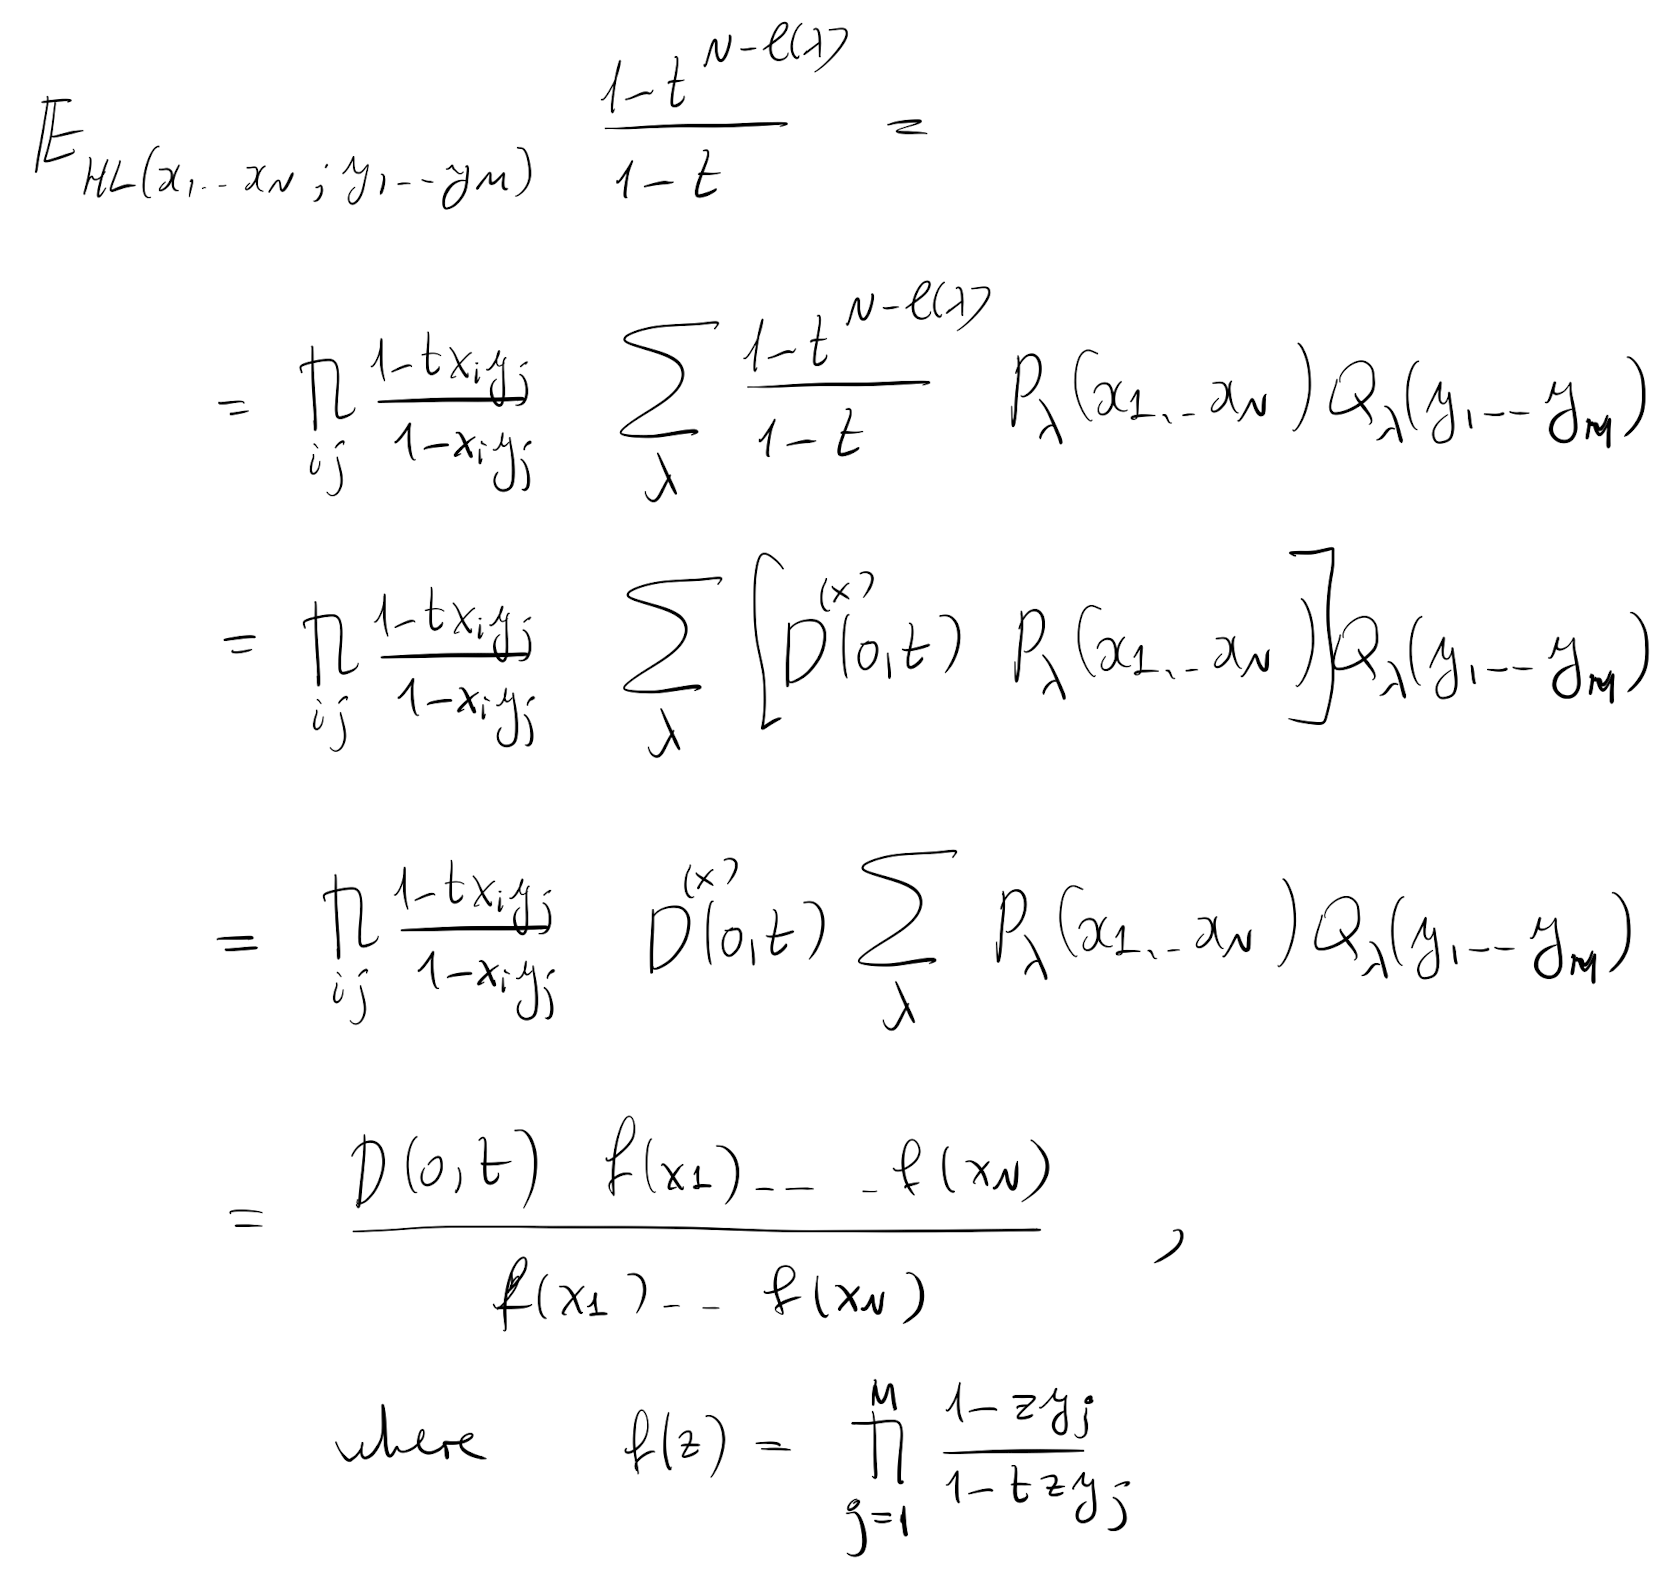 $\mathbb{E}_{HL(x_1 .. x_N ; y_1 -- y_M)} \frac{1-t^{N-\ell(\lambda)}}{1-t} =$
$= \prod_{ij} \frac{1-tx_iy_j}{1-x_iy_j} \sum_\lambda \frac{1-t^{N-\ell(\lambda)}}{1-t} P_\lambda(x_1 .. x_N) Q_\lambda(y_1 -- y_M)$
$= \prod_{ij} \frac{1-tx_iy_j}{1-x_iy_j} \sum_\lambda \left[ D^{(x)}(0,t) P_\lambda(x_1 .. x_N) \right] Q_\lambda(y_1 -- y_M)$
$= \prod_{ij} \frac{1-tx_iy_j}{1-x_iy_j} D^{(x)}(0,t) \sum_\lambda P_\lambda(x_1 .. x_N) Q_\lambda(y_1 -- y_M)$
$= \frac{D(0,t) f(x_1) --- f(x_N)}{f(x_1) -- f(x_N)} ,$
where $f(z) = \prod_{j=1}^{M} \frac{1-zy_j}{1-tzy_j}$